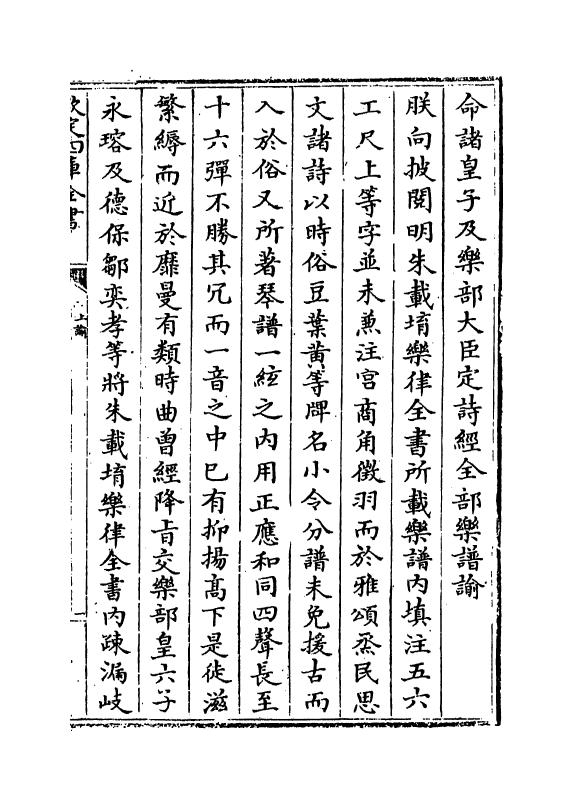 命諸皇子及樂部大臣定詩經全部樂譜諭
朕向披閱明朱載堉樂律全書所載樂譜內填注五六
工尺上等字並未兼注宮商角徵羽而於雅頌烝民思
文諸詩以時俗豆葉黃等牌名小令分譜未免援古而
入於俗又所著琴譜一絃之內用正應和同四聲長至
十六彈不勝其冗而一音之中已有抑揚髙下是徒滋
繁縟而近於靡曼有類時曲曾經降㫖交樂部皇六子
永瑢及德保鄒奕孝等將朱載堉樂律全書內疎漏岐
欽定四庫全書
上諭